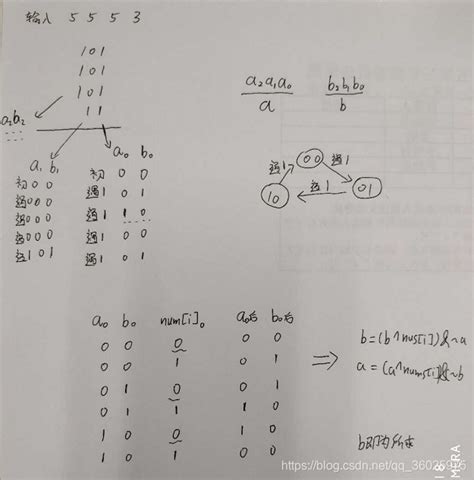 输入 5 5 5 3
101
101
101
11
a₂b₂
a₁ b₁
初 0 0
遇0 0 0
遇0 0 0
遇0 0 0
遇1 0 1
a₀ b₀
初 0 0
遇1 0 1
遇1 1 0
遇1 0 0
遇1 0 1
a₂a₁a₀ b₂b₁b₀
a b
00
遇1 遇1
10 遇1 01
a₀ b₀ num[i]₀ a₀后 b₀后
0 0 0 0 0
0 0 1 0 1
0 1 0 0 1
0 1 1 1 0
1 0 0 1 0
1 0 1 0 0
⇒
b=(b^nus[i])&~a
a=(a^nums[i])&~b
b即为所求
https://blog.csdn.net/qq_36025